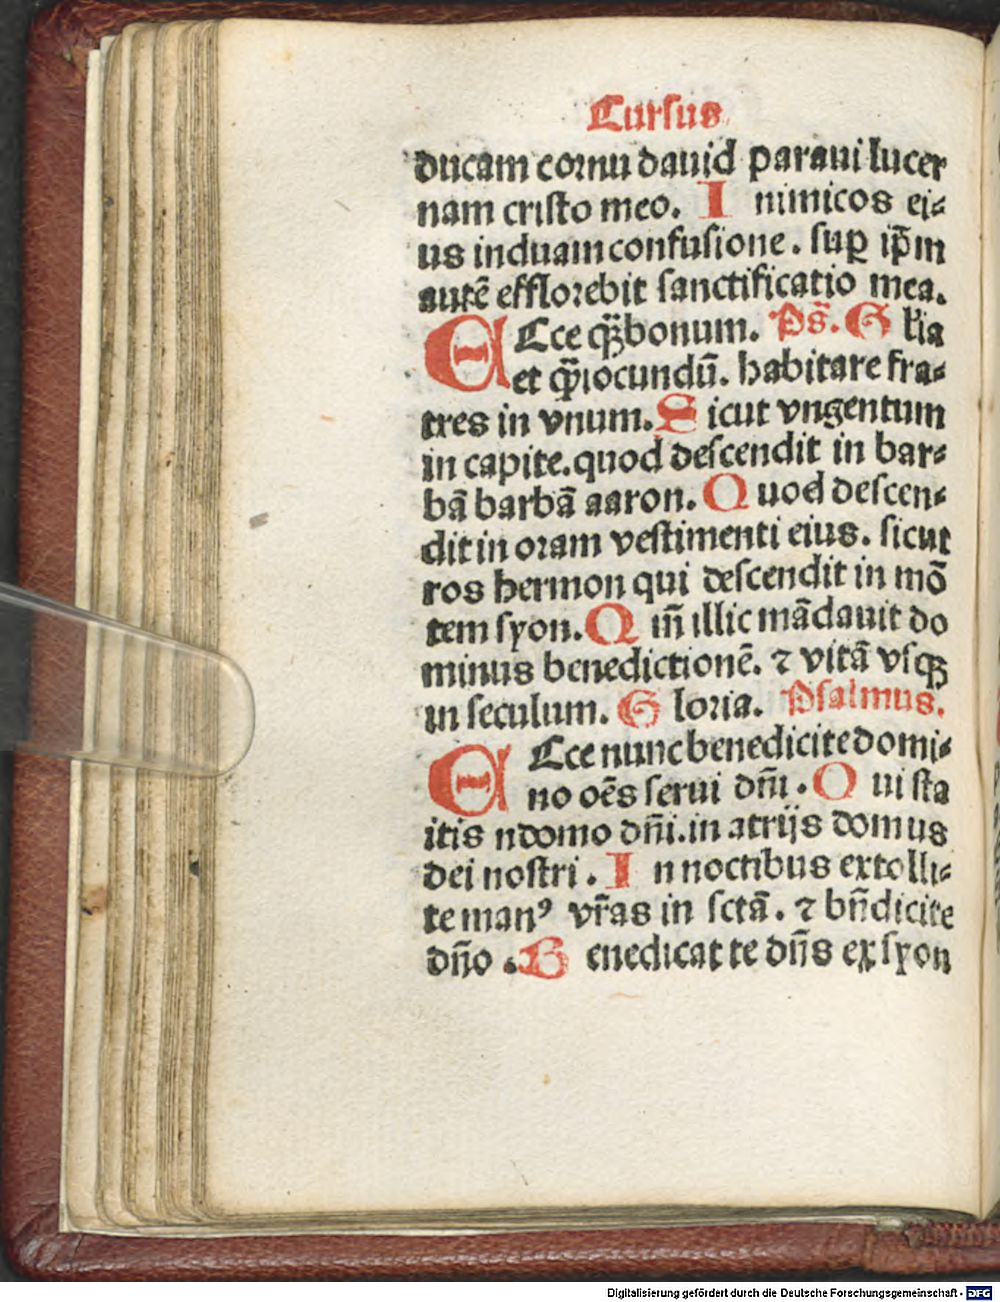 Cursus
ducam cornu dauid paraui lucer
nam cristo meo. Inimicos ei⸗
us induam confusione. suꝑ ip̄m
autē efflorebit sanctificatio mea.
ECce q̄ꝫbonum. Ps̄. Gl̄ia
et q̄ꝫiocundū. habitare fra⸗
tres in vnum. Sicut vngentum
in capite. quod descendit in bar⸗
bā barbā aaron. Quod descen⸗
dit in oram vestimenti eius. sicut
ros hermon qui descendit in mō
tem syon. Qm̄ illic mādauit do
minus benedictionē. ⁊ vitā vsqꝫ
in seculum. Gloria. Psalmus.
ECce nunc benedicite domi⸗
no oēs serui dn̄i. Qui sta
itis n domo dn̄i. in atrijs domus
dei nostri. In noctibus extolli⸗
te manꝰ vr̄as in sctā. ⁊ bn̄dicite
dn̄o. Benedicat te dn̄s ex syon
Digitalisierung gefördert durch die Deutsche Forschungsgemeinschaft - DFG